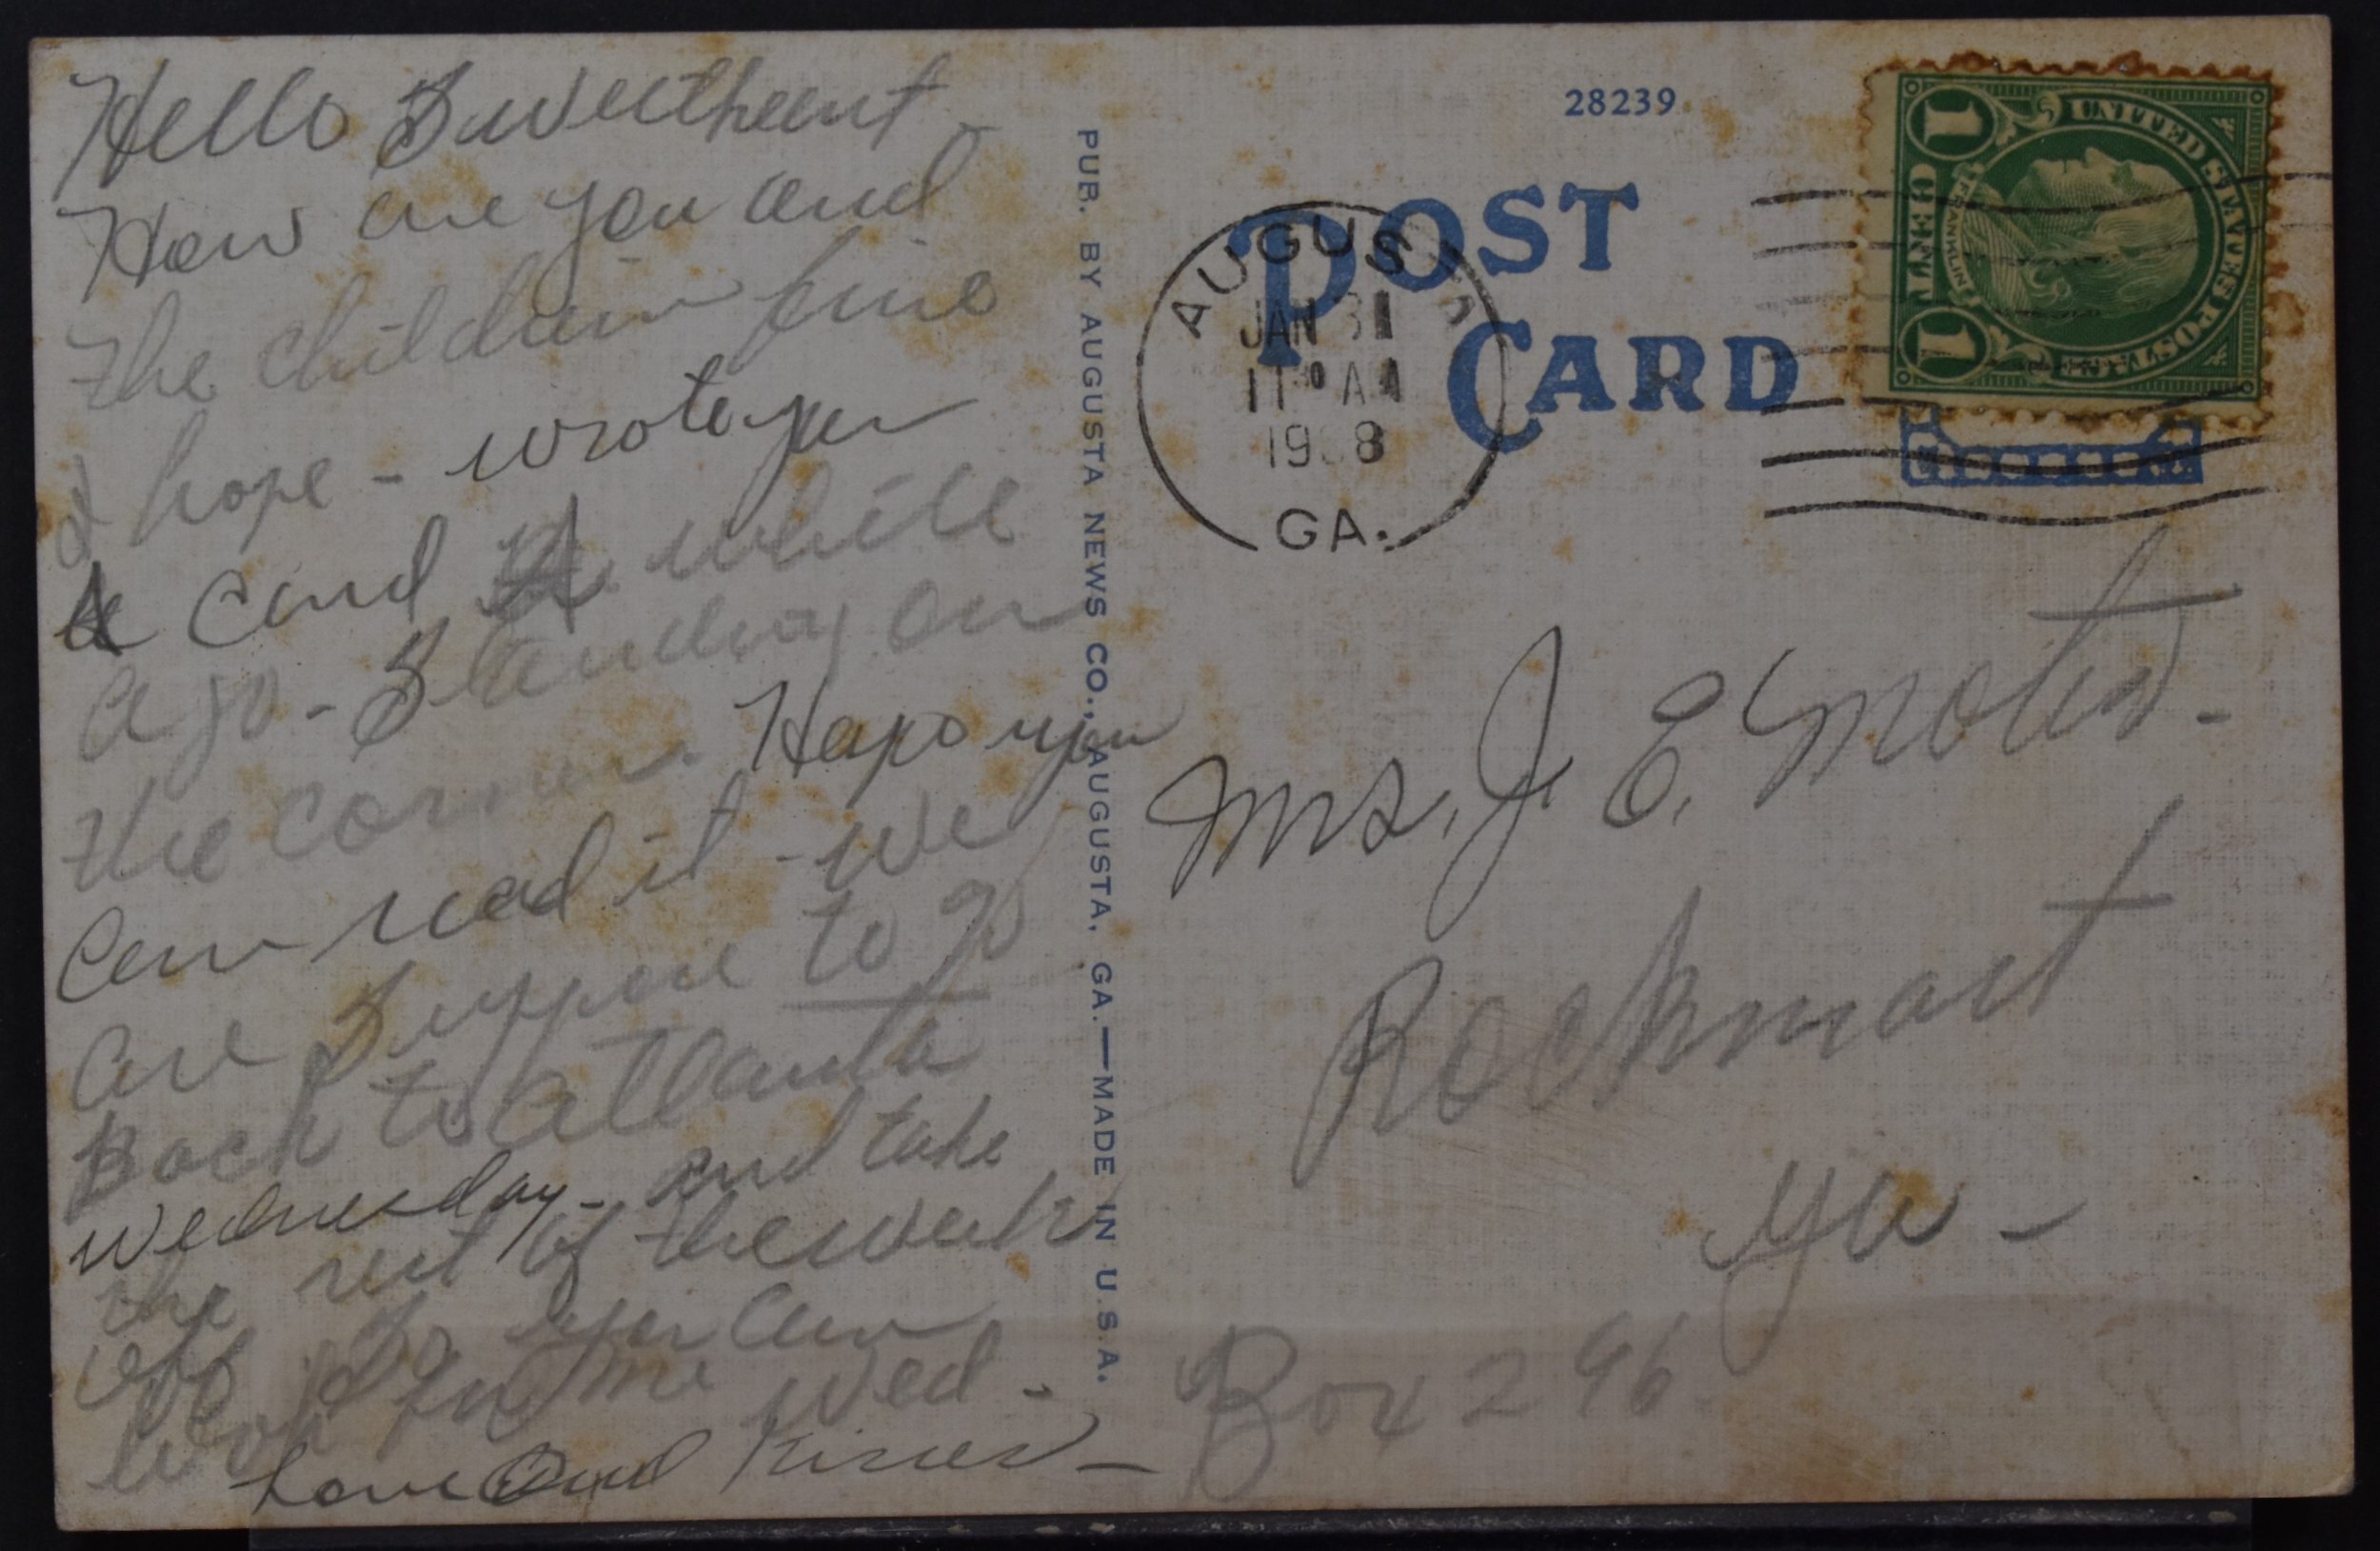 Hello Sweetheart -
How are you and
the children fine
I hope - wrote you
a card A while
ago - Standing on
the corner. Hape you
can read it - we
are Suppose to go
Back to Atlanta
Wednesday - and take
the rest of the week
off So you can
look for me Wed -
Love and Kisses -
PUB. BY AUGUSTA NEWS CO., AUGUSTA, GA.—MADE IN U.S.A.
28239
POST
CARD
AUGUSTA
JAN 31
11 30 AM
19 8
GA.
UNITED STATES POSTAGE
FRANKLIN
1 CENT 1
Mrs. J. E. Motes -
Rockmart
Ga -
Box 296.